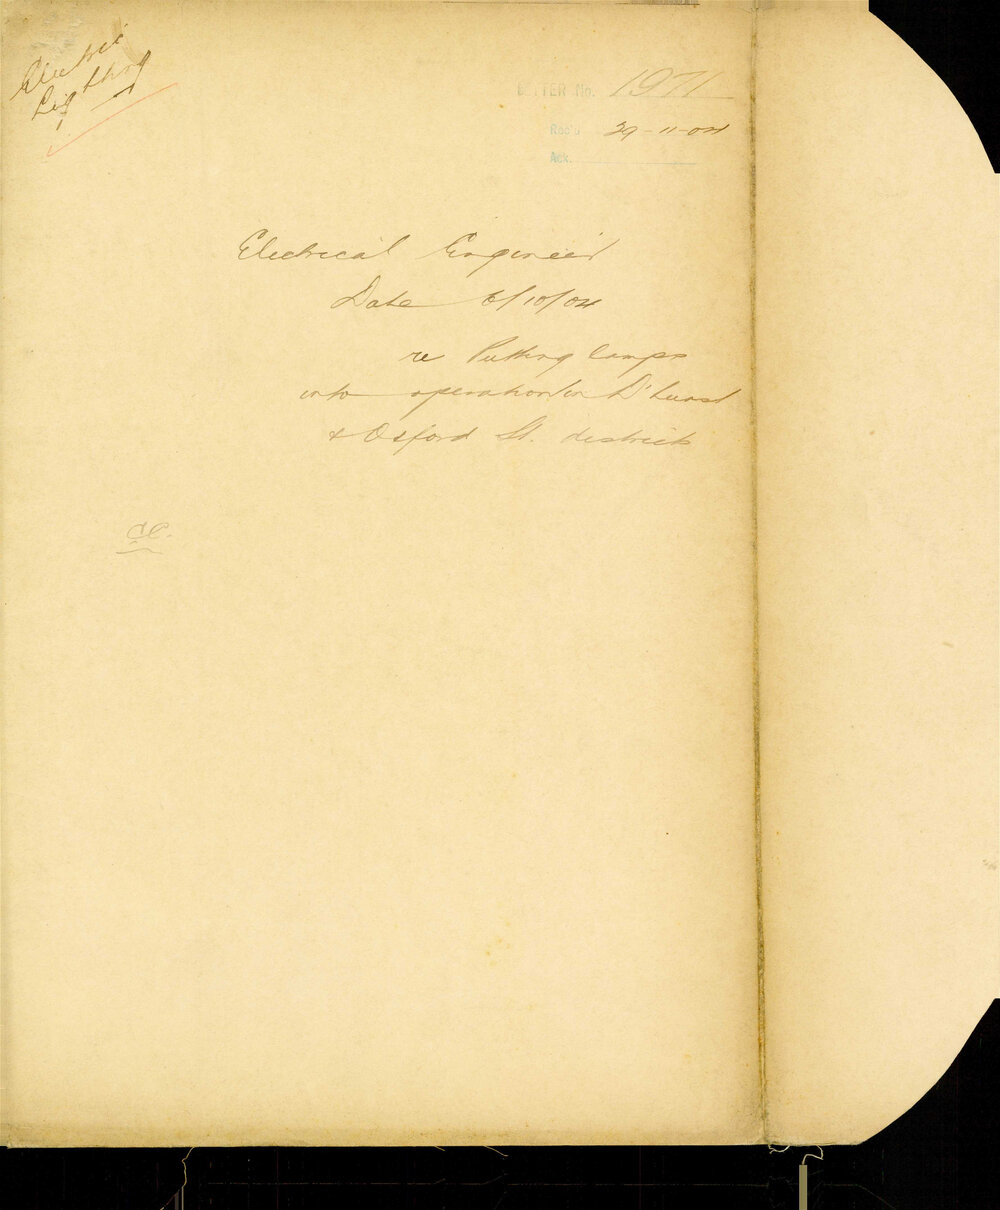 Electric
Lighting
LETTER No. 1971
Rec'd 29-11-04
Ack.
Electrical Engineer
Date 6/10/04
re Putting lamps
into operation in D'hurst
& Oxford St. districts